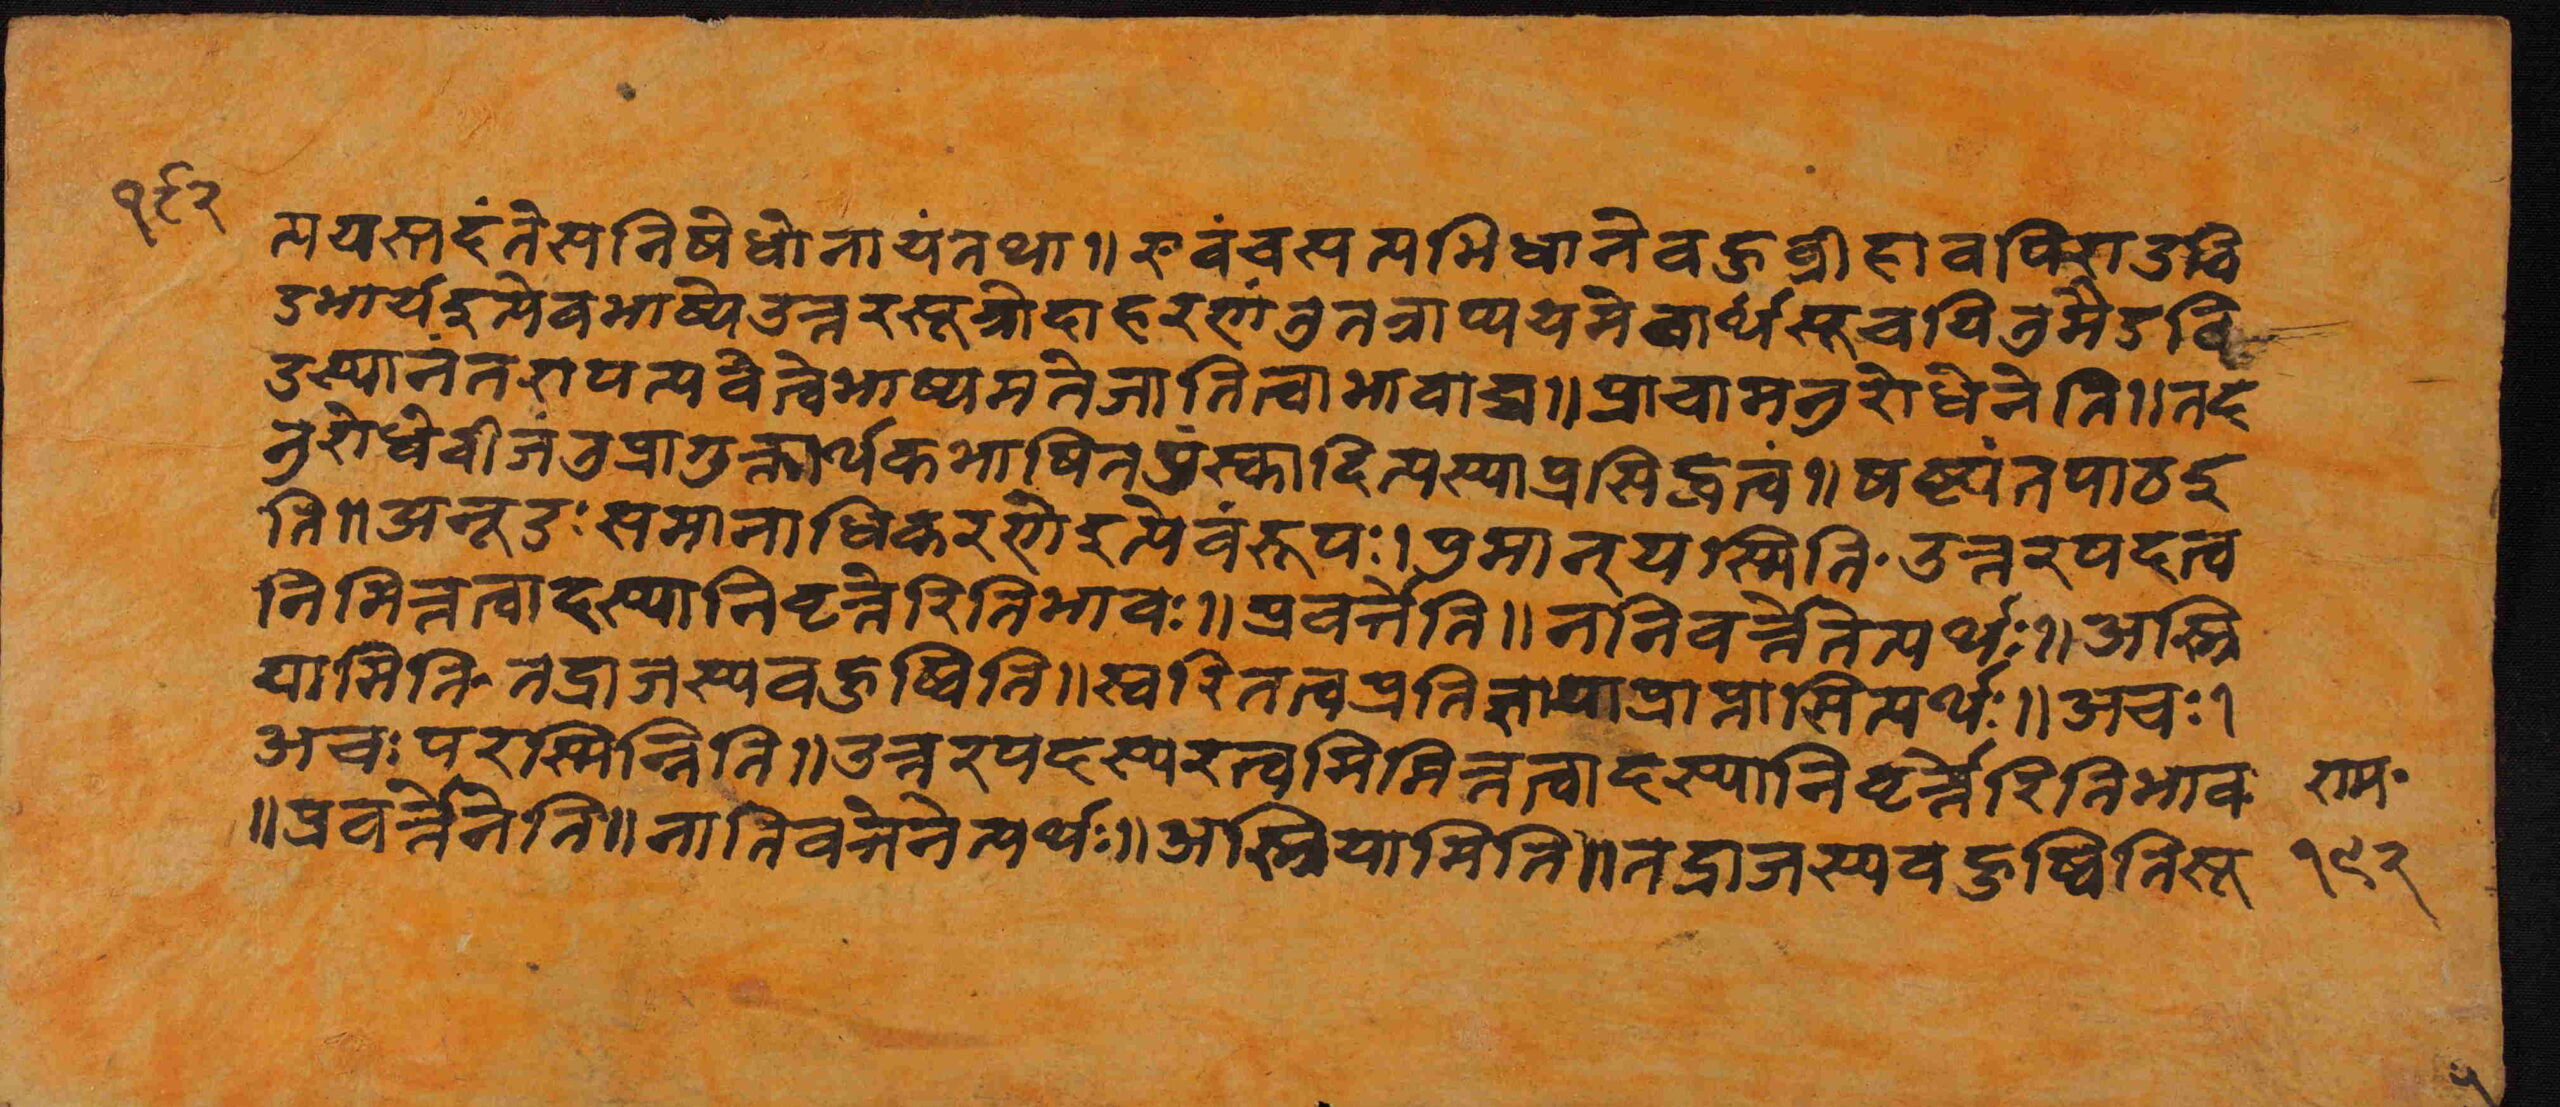 १९२
त्पयस्तदंतेसनिषेधोनायंतथा॥ एवंचसत्यभिधानेवहुव्रीहावपिराडवि
डभार्यइत्येवभाष्येउत्तरसूत्रोदाहरणंतुतत्राप्ययमेवार्थसूचयितुमैडवि
डस्यानंतरापत्यवैत्वेभाष्यमतेजातित्वाभावाच्च॥ प्राचामनुरोधेनेति॥ तद
नुरोधेवीजंतुप्रागुक्तार्थकभाषितपुंस्कादित्यस्याप्रसिद्धत्वं॥ षष्ट्यंतपाठइ
ति॥ अनूङः समानाधिकरणेइत्येवंरूपः। पुमान्यस्मिति॰ उत्तरपदत्व
निमित्तत्वादस्यानिवृत्तेरितिभावः॥ प्रवर्त्तेति॥ ननिवर्त्तेतेत्यर्थः॥ अस्त्रि
यामिति॰ तद्राजस्यवहुष्विति॥ स्वरितत्वप्रतिज्ञायाप्राप्तासित्यर्थः॥ अचः।
अचः परस्मिन्निति॥ उत्तरपदस्यरत्वमिमित्तत्वादस्यानिवृर्त्तेरितिभाव
॥ प्रवर्त्तेनेति॥ नातिवर्त्तनेत्यर्थः॥ अस्त्रियामिति॥ तद्राजस्यवहुष्वितिसू
राम॰
१९२